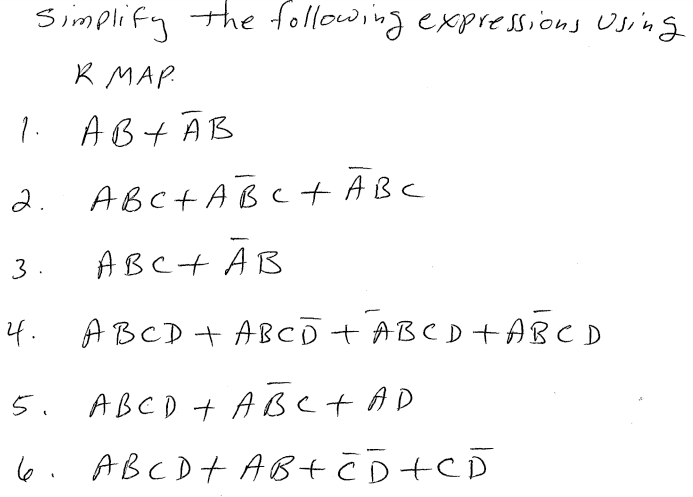 Simplify the following expressions using
K MAP.
1. AB + A̅B
2. ABC + AB̅C + A̅BC
3. ABC + A̅B
4. ABCD + ABCD̅ + A̅BCD + AB̅CD
5. ABCD + AB̅C + AD
6. ABCD + AB + C̅D̅ + CD̅